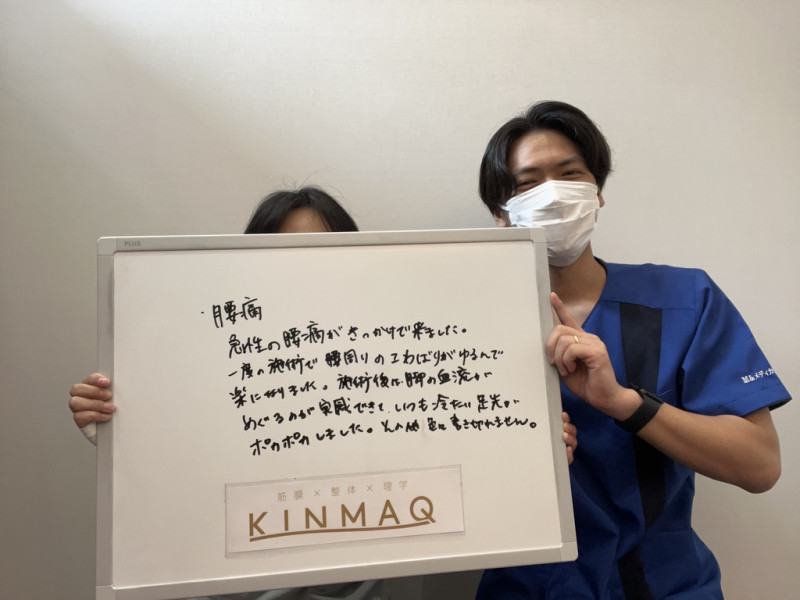 PLUS
・腰痛
急性の腰痛がきっかけで来ました。
一度の施術で腰周りのこわばりがゆるんで
楽になりました。施術後は脚の血流が
めぐるのが実感できて、いつも冷たい足先が
ポカポカしました。その他色々書き切れません。
筋膜×整体×理学
KINMAQ
メディカ